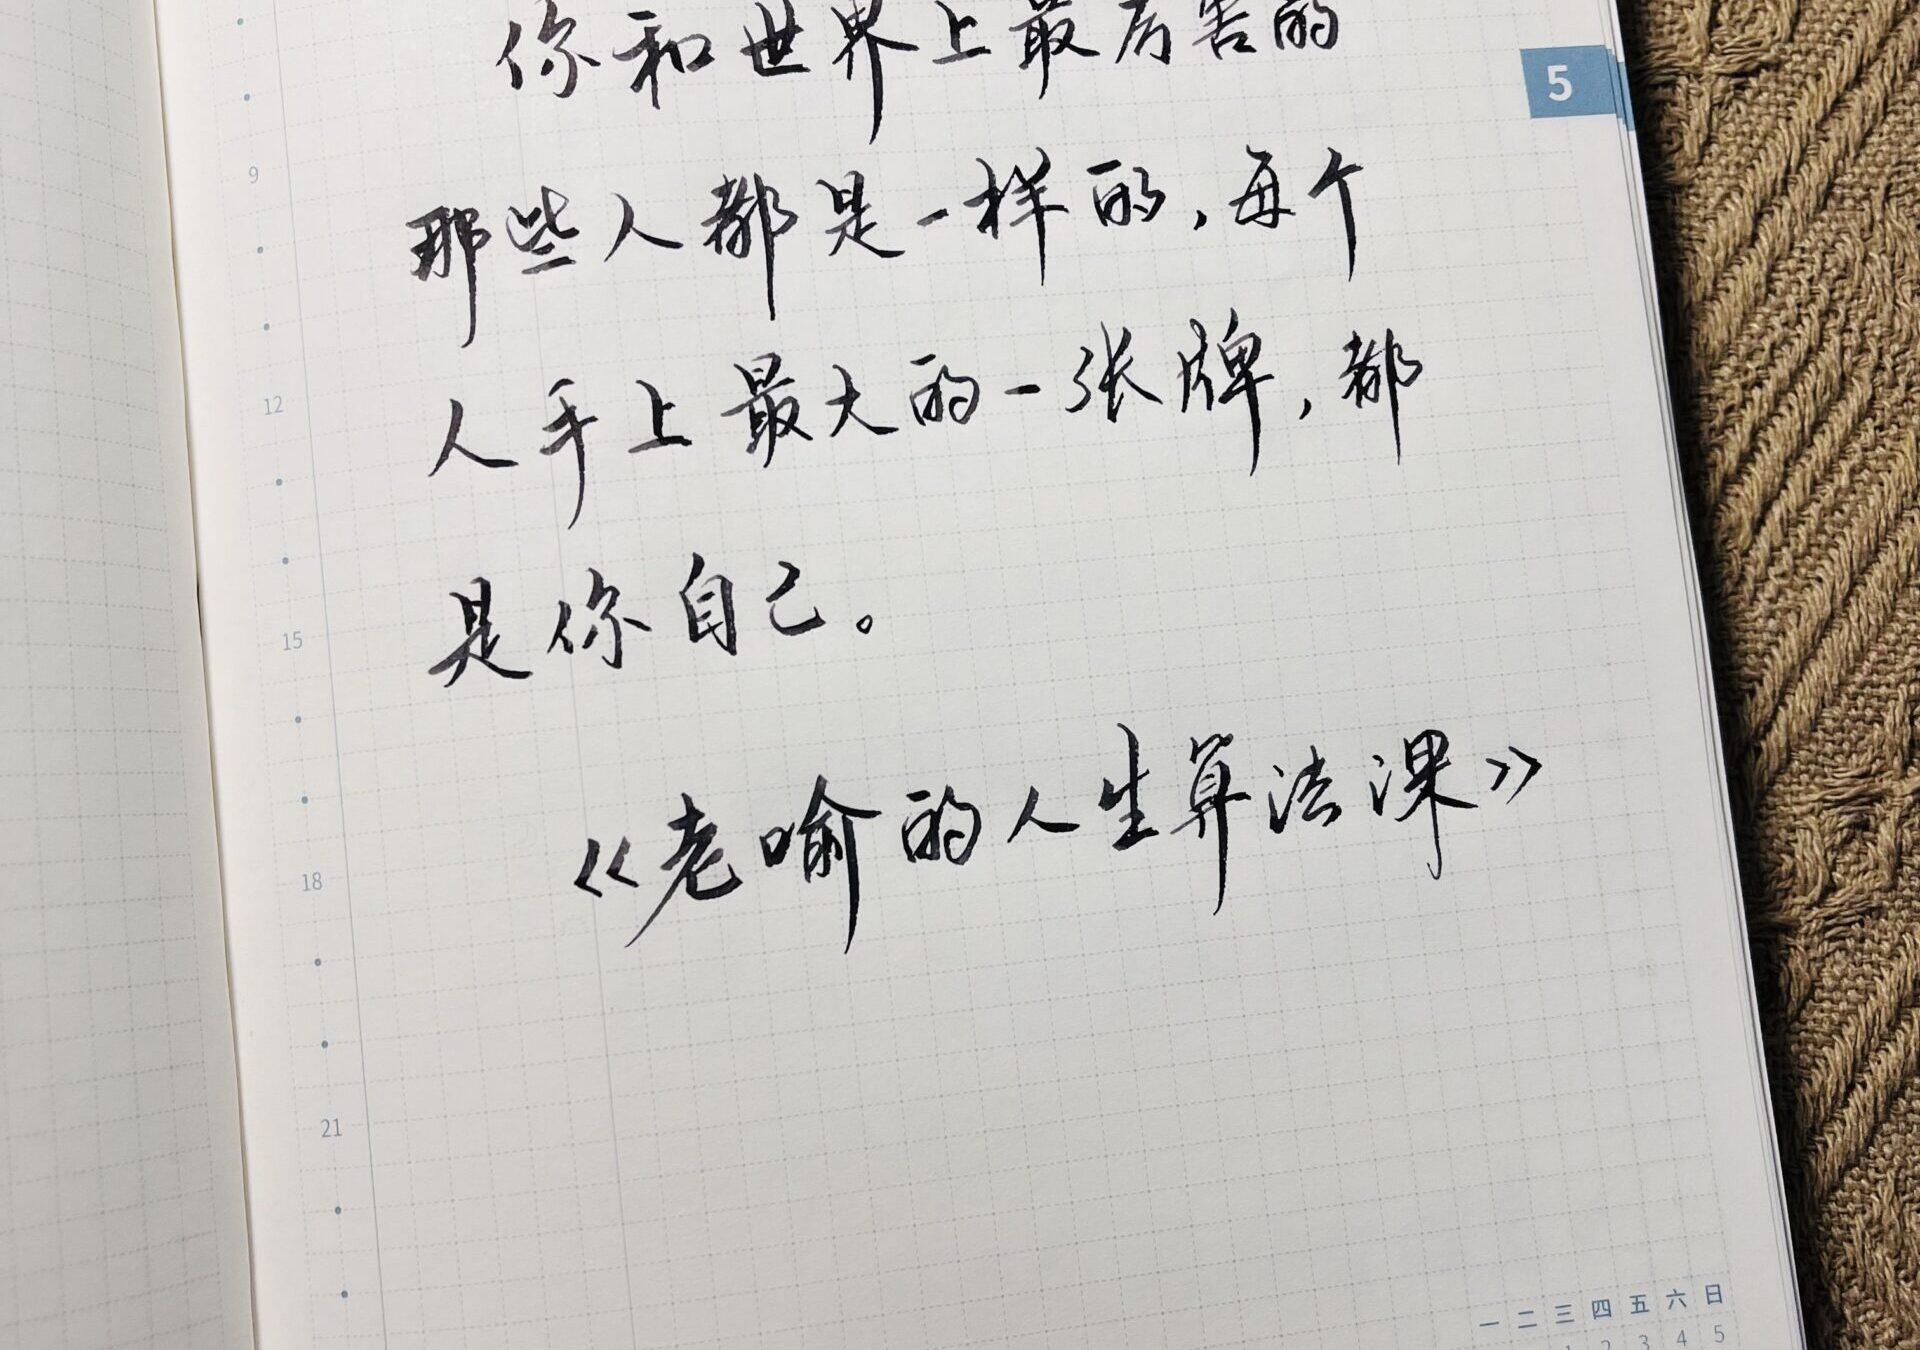 你和世界上最厉害的
5
那些人都是一样的,每个
9
人手上最大的一张牌,都
12
是你自己。
15
《老喻的人生算法课》
18
21
一 二 三 四 五 六 日
1 2 3 4 5